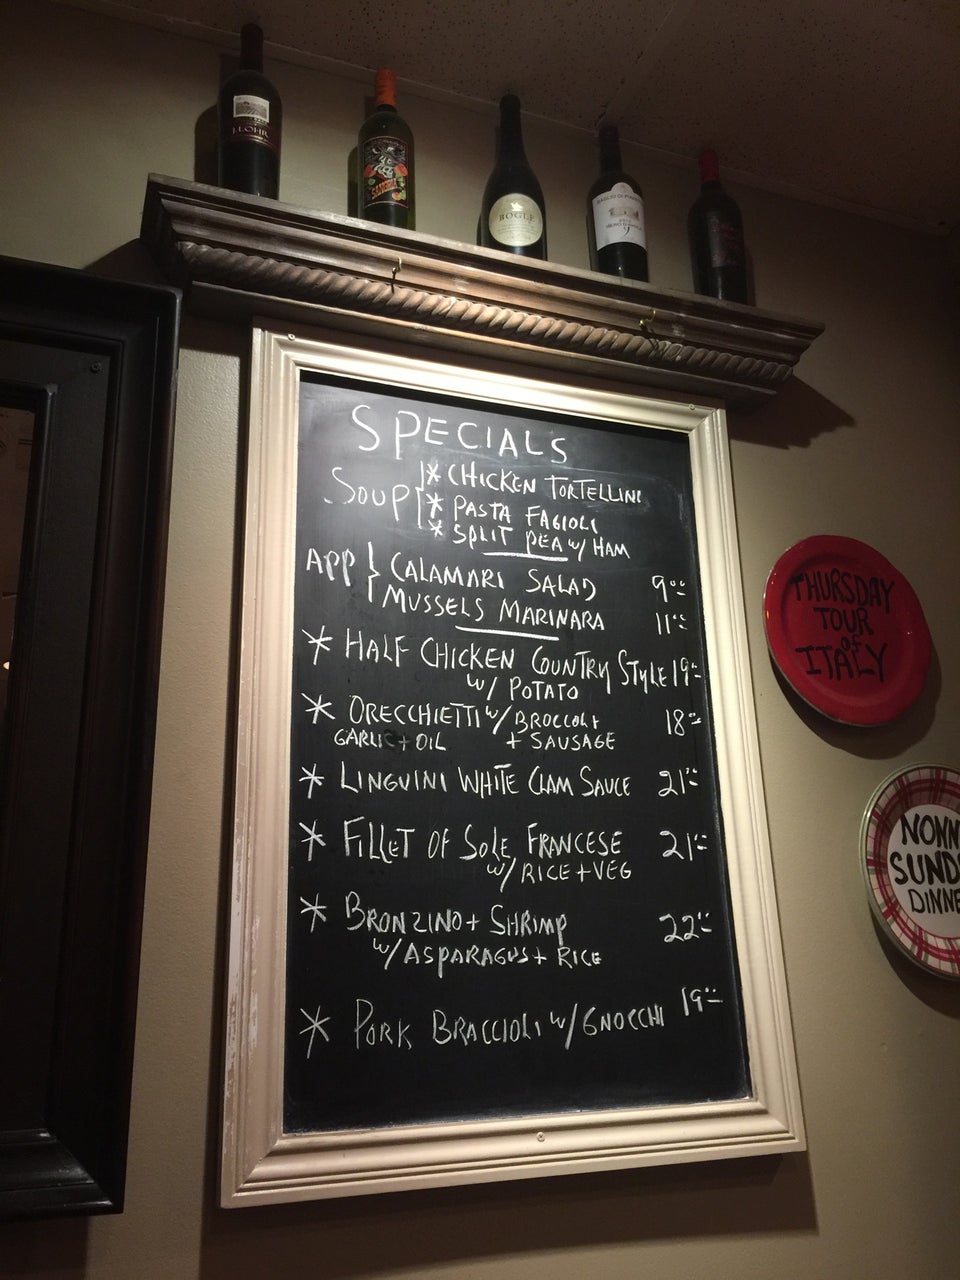 J. LOHR
SANGRIA
BOGLE
SPECIALS
SOUP
* CHICKEN TORTELLINI
* PASTA FAGIOLI
* SPLIT PEA w/ HAM
APP } CALAMARI SALAD 9.00
MUSSELS MARINARA 11.00
* HALF CHICKEN COUNTRY STYLE 19-
w/ POTATO
* ORECCHIETTI w/ BROCCOLI 18.00
GARLIC + OIL + SAUSAGE
* LINGUINI WHITE CLAM SAUCE 21.00
* FILLET OF SOLE FRANCESE 21.00
w/ RICE + VEG
* BRONZINO + SHRIMP 22.00
w/ ASPARAGUS + RICE
* PORK BRACCIOLI w/ GNOCCHI 19.00
THURSDAY
TOUR
of
ITALY
NONN
SUND
DINNE